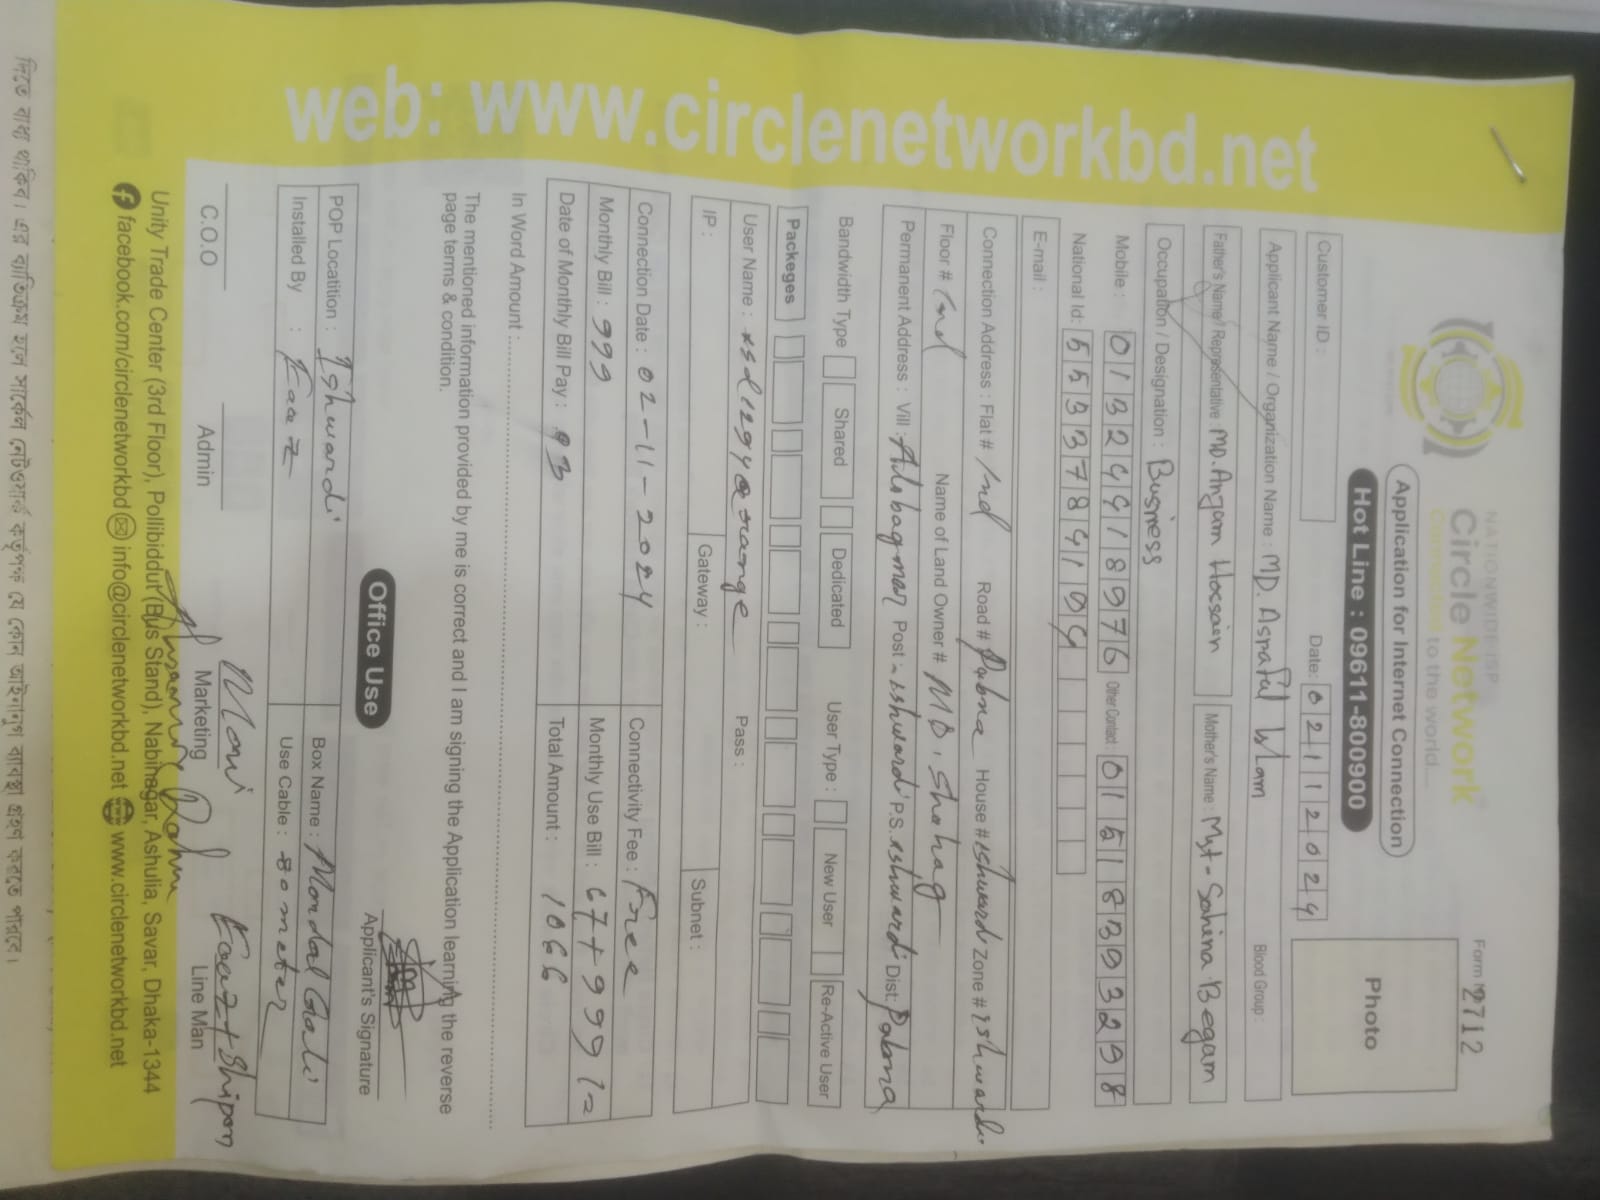 web: www.circlenetworkbd.net
NATIONWIDE ISP
Circle Network
Connected to the world...
Form N 2712
Application for Internet Connection
Hot Line : 09611-800900
Photo
Customer ID :
Date: 02112024
Applicant Name / Organization Name : MD. Asraful Islam
Blood Group :
Father's Name / Representative : MD. Anzam Hossain
Mother's Name : Myt- Sahina Begam
Occupation / Designation : Business
Mobile : 01324418976 Other Contact : 01518393298
National Id: 5533784194
E-mail :
Connection Address : Flat # Road # Pabna House # ishwardi Zone # ishwardi
Floor # Name of Land Owner # MD. Shahag
Permanent Address : Vill : Post - ishwardi P.S. ishwardi Dist: Pabna
Bandwidth Type Shared Dedicated User Type : New User Re-Active User
Packeges
User Name : Pass :
IP : Gateway : Subnet :
Connection Date : 02-11-2024 Connectivity Fee : Free
Monthly Bill : 999 Monthly Use Bill : 67+999/=
Date of Monthly Bill Pay : 03 Total Amount : 1066
In Word Amount :
The mentioned information provided by me is correct and I am signing the Application learning the reverse
page terms & condition.
Applicant's Signature
Office Use
POP Locatition : Ishwardi Box Name : Mondol Gali
Installed By : Use Cable : 80 meter
C.O.O Admin Marketing Line Man
Unity Trade Center (3rd Floor), Pollibiddut (Bus Stand), Nabinagar, Ashulia, Savar, Dhaka-1344
facebook.com/circlenetworkbd info@circlenetworkbd.net www.circlenetworkbd.net
দিতে বাধ্য থাকিব। এর ব্যতিক্রম হলে সার্কেল নেটওয়ার্ক কর্তৃপক্ষ যে কোন আইনানুগ ব্যবস্থা গ্রহণ করতে পারবে।